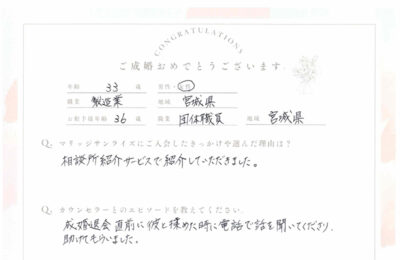 CONGRATULATIONS
ご成婚おめでとうございます。
年齢 33 歳 男性・女性
職業 製造業 地域 宮城県
お相手様年齢 36 歳 職業 団体職員 地域 宮城県
Q. マリッジサンライズにご入会したきっかけや選んだ理由は?
相談所紹介サービスで紹介していただきました。
Q. カウンセラーとのエピソードを教えてください。
成婚退会直前に彼と揉めた時に電話で話を聞いてくださり、
助けてもらいました。